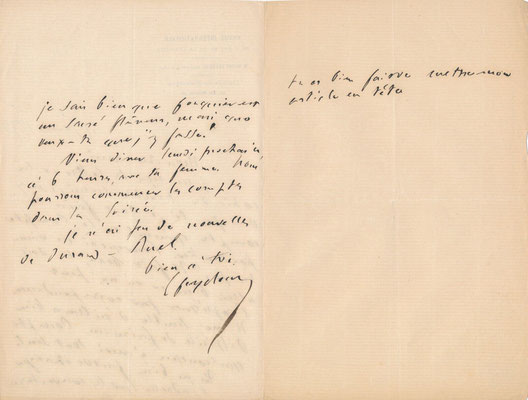 je sais bien que fouquier est
un sacré flâneur, mais que
veux-tu que j'y fasse!
Viens diner lundi prochain,
à 6 heures, avec ta femme. Nous
pourrons commencer les comptes
dans la soirée.
je n'ai pas de nouvelles
de Durand-Ruel.
bien à toi.
tu as bien fait de mettre mon
article en tête